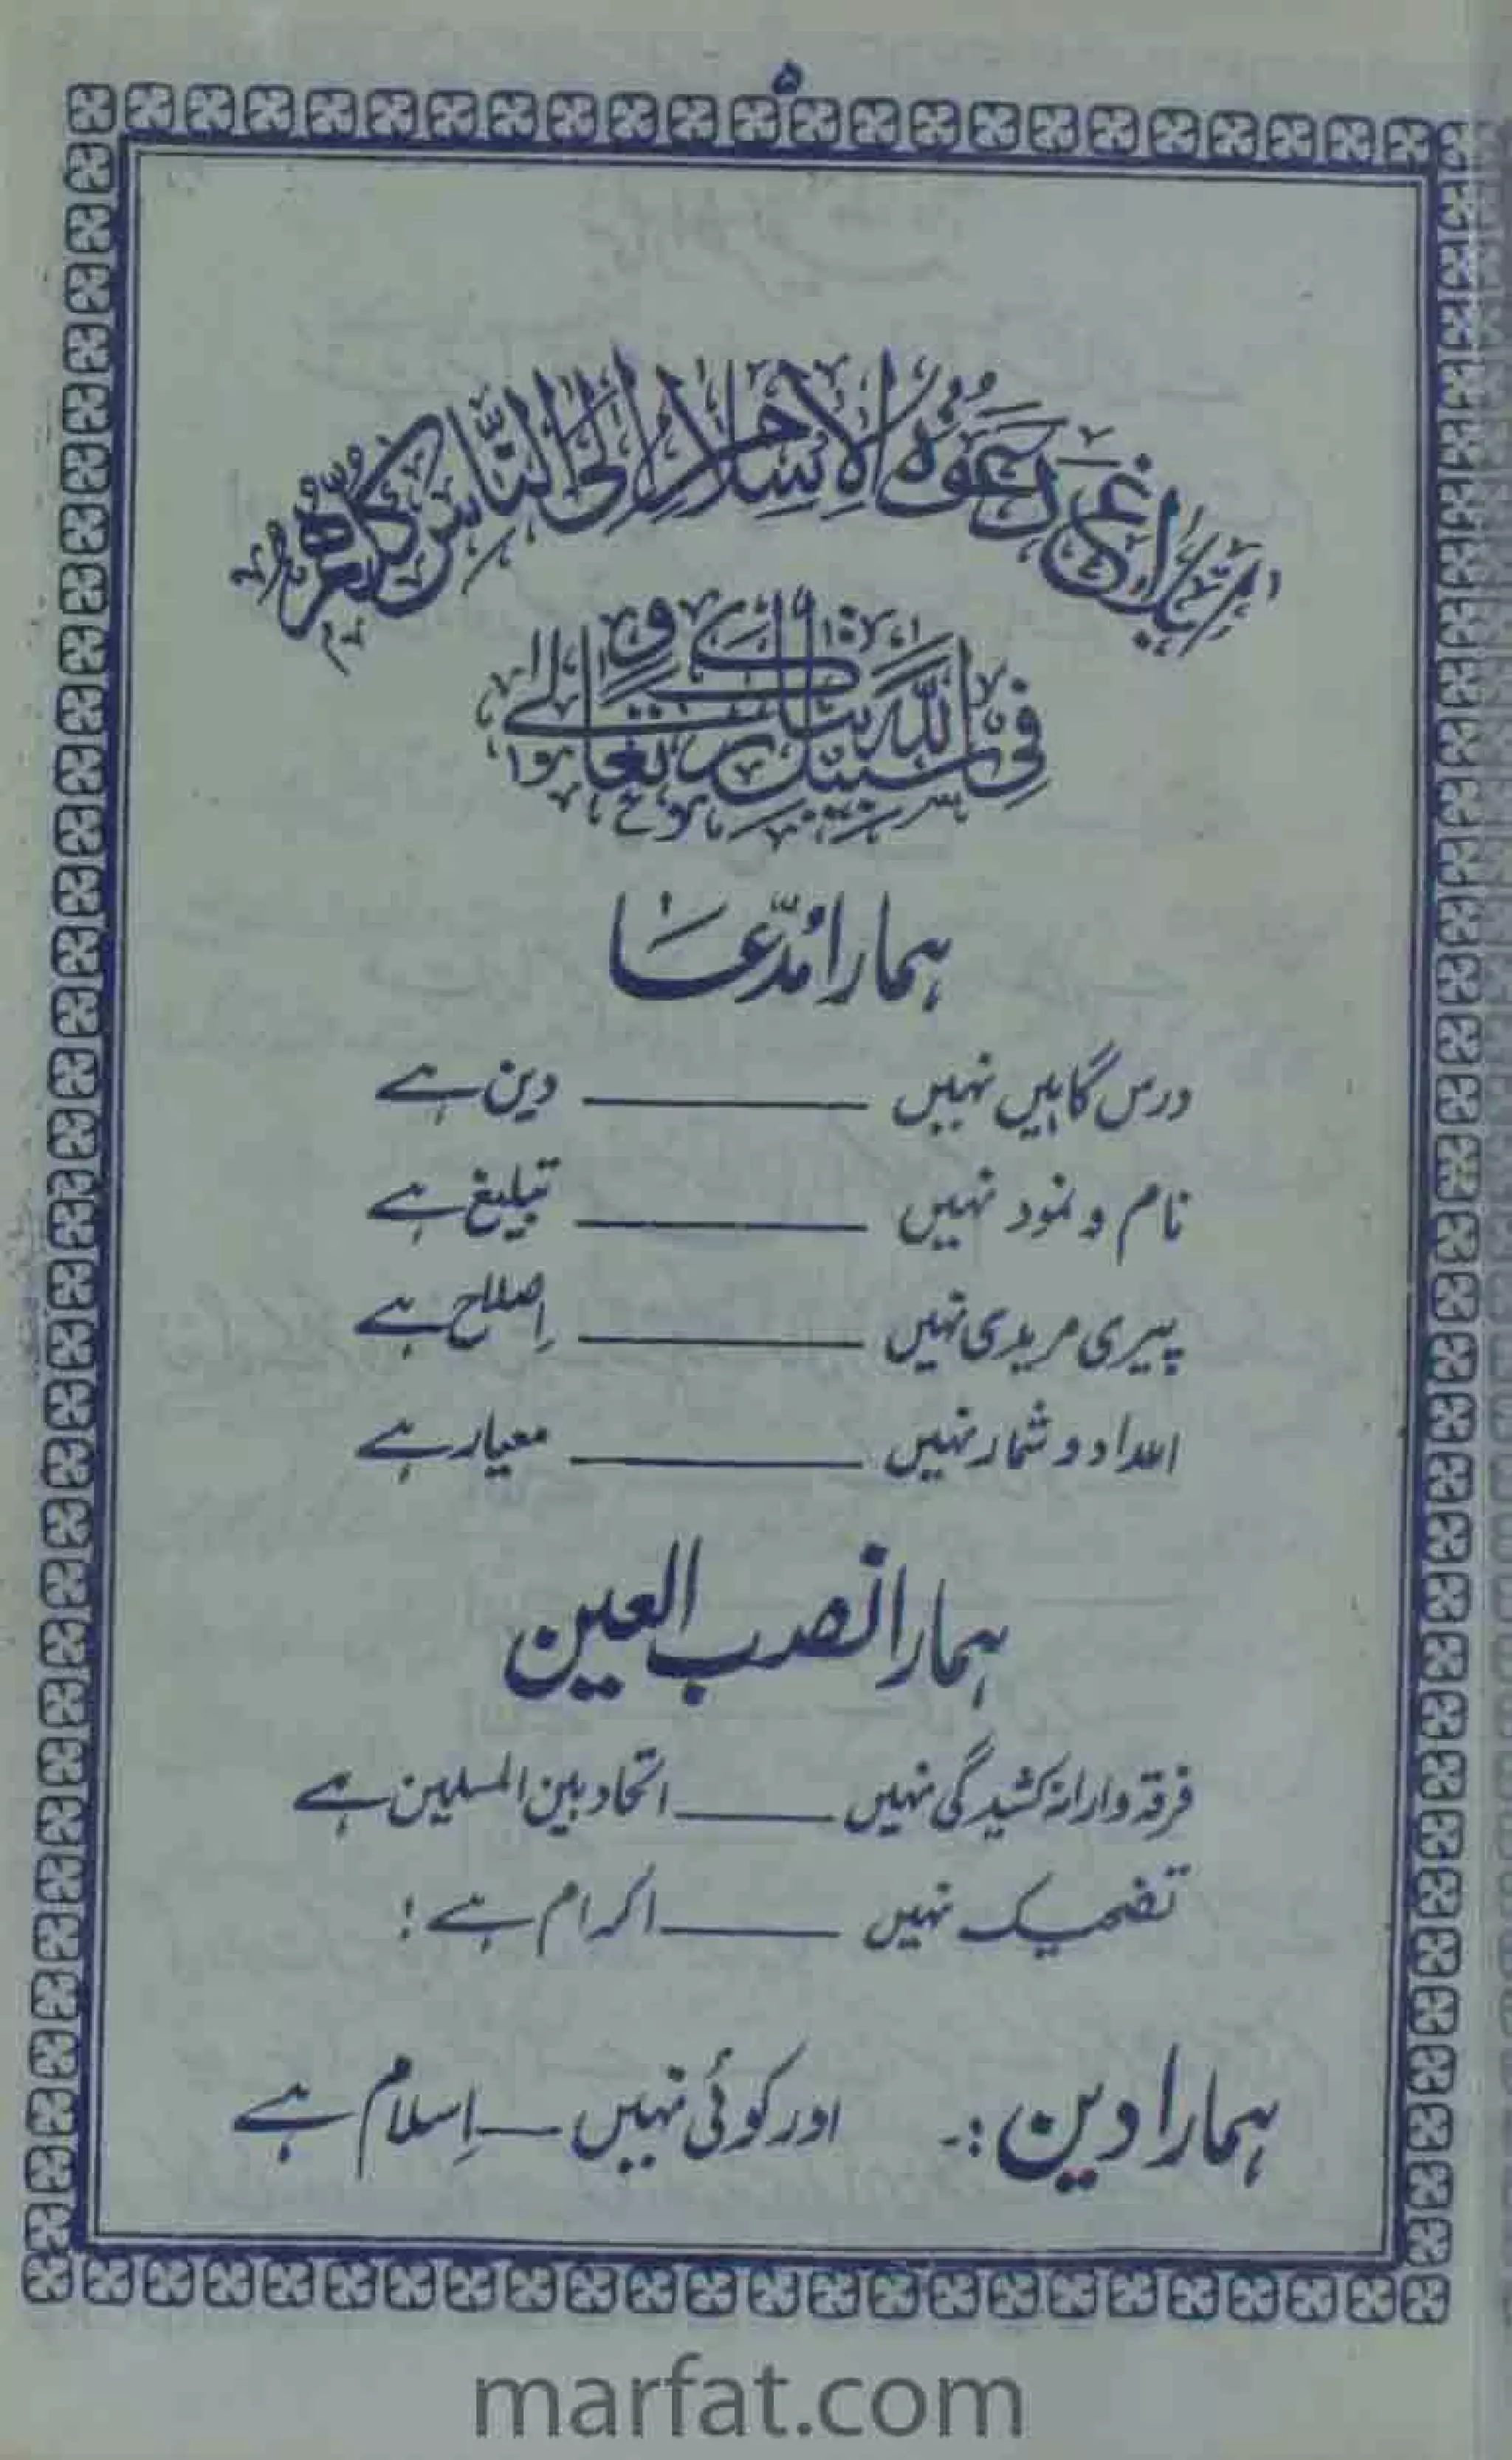 ۵
ابلاغ دعوة الاسلام الى الناس كلهم
فی سبیل الله تبارک و تعالیٰ
ہمارا مدّعا
درس گاہیں نہیں ــــــــ دین ہے
نام و نمود نہیں ــــــــ تبلیغ ہے
پیری مریدی نہیں ــــــــ اِصلاح ہے
اعداد و شمار نہیں ــــــــ معیار ہے
ہمارا نصب العین
فرقہ وارانہ کشیدگی نہیں ــــــــ اتحاد بین المسلمین ہے
تضحیک نہیں ــــــــ اکرام ہے !
ہمارا دین :۔ اور کوئی نہیں ــــ اِسلام ہے
marfat.com